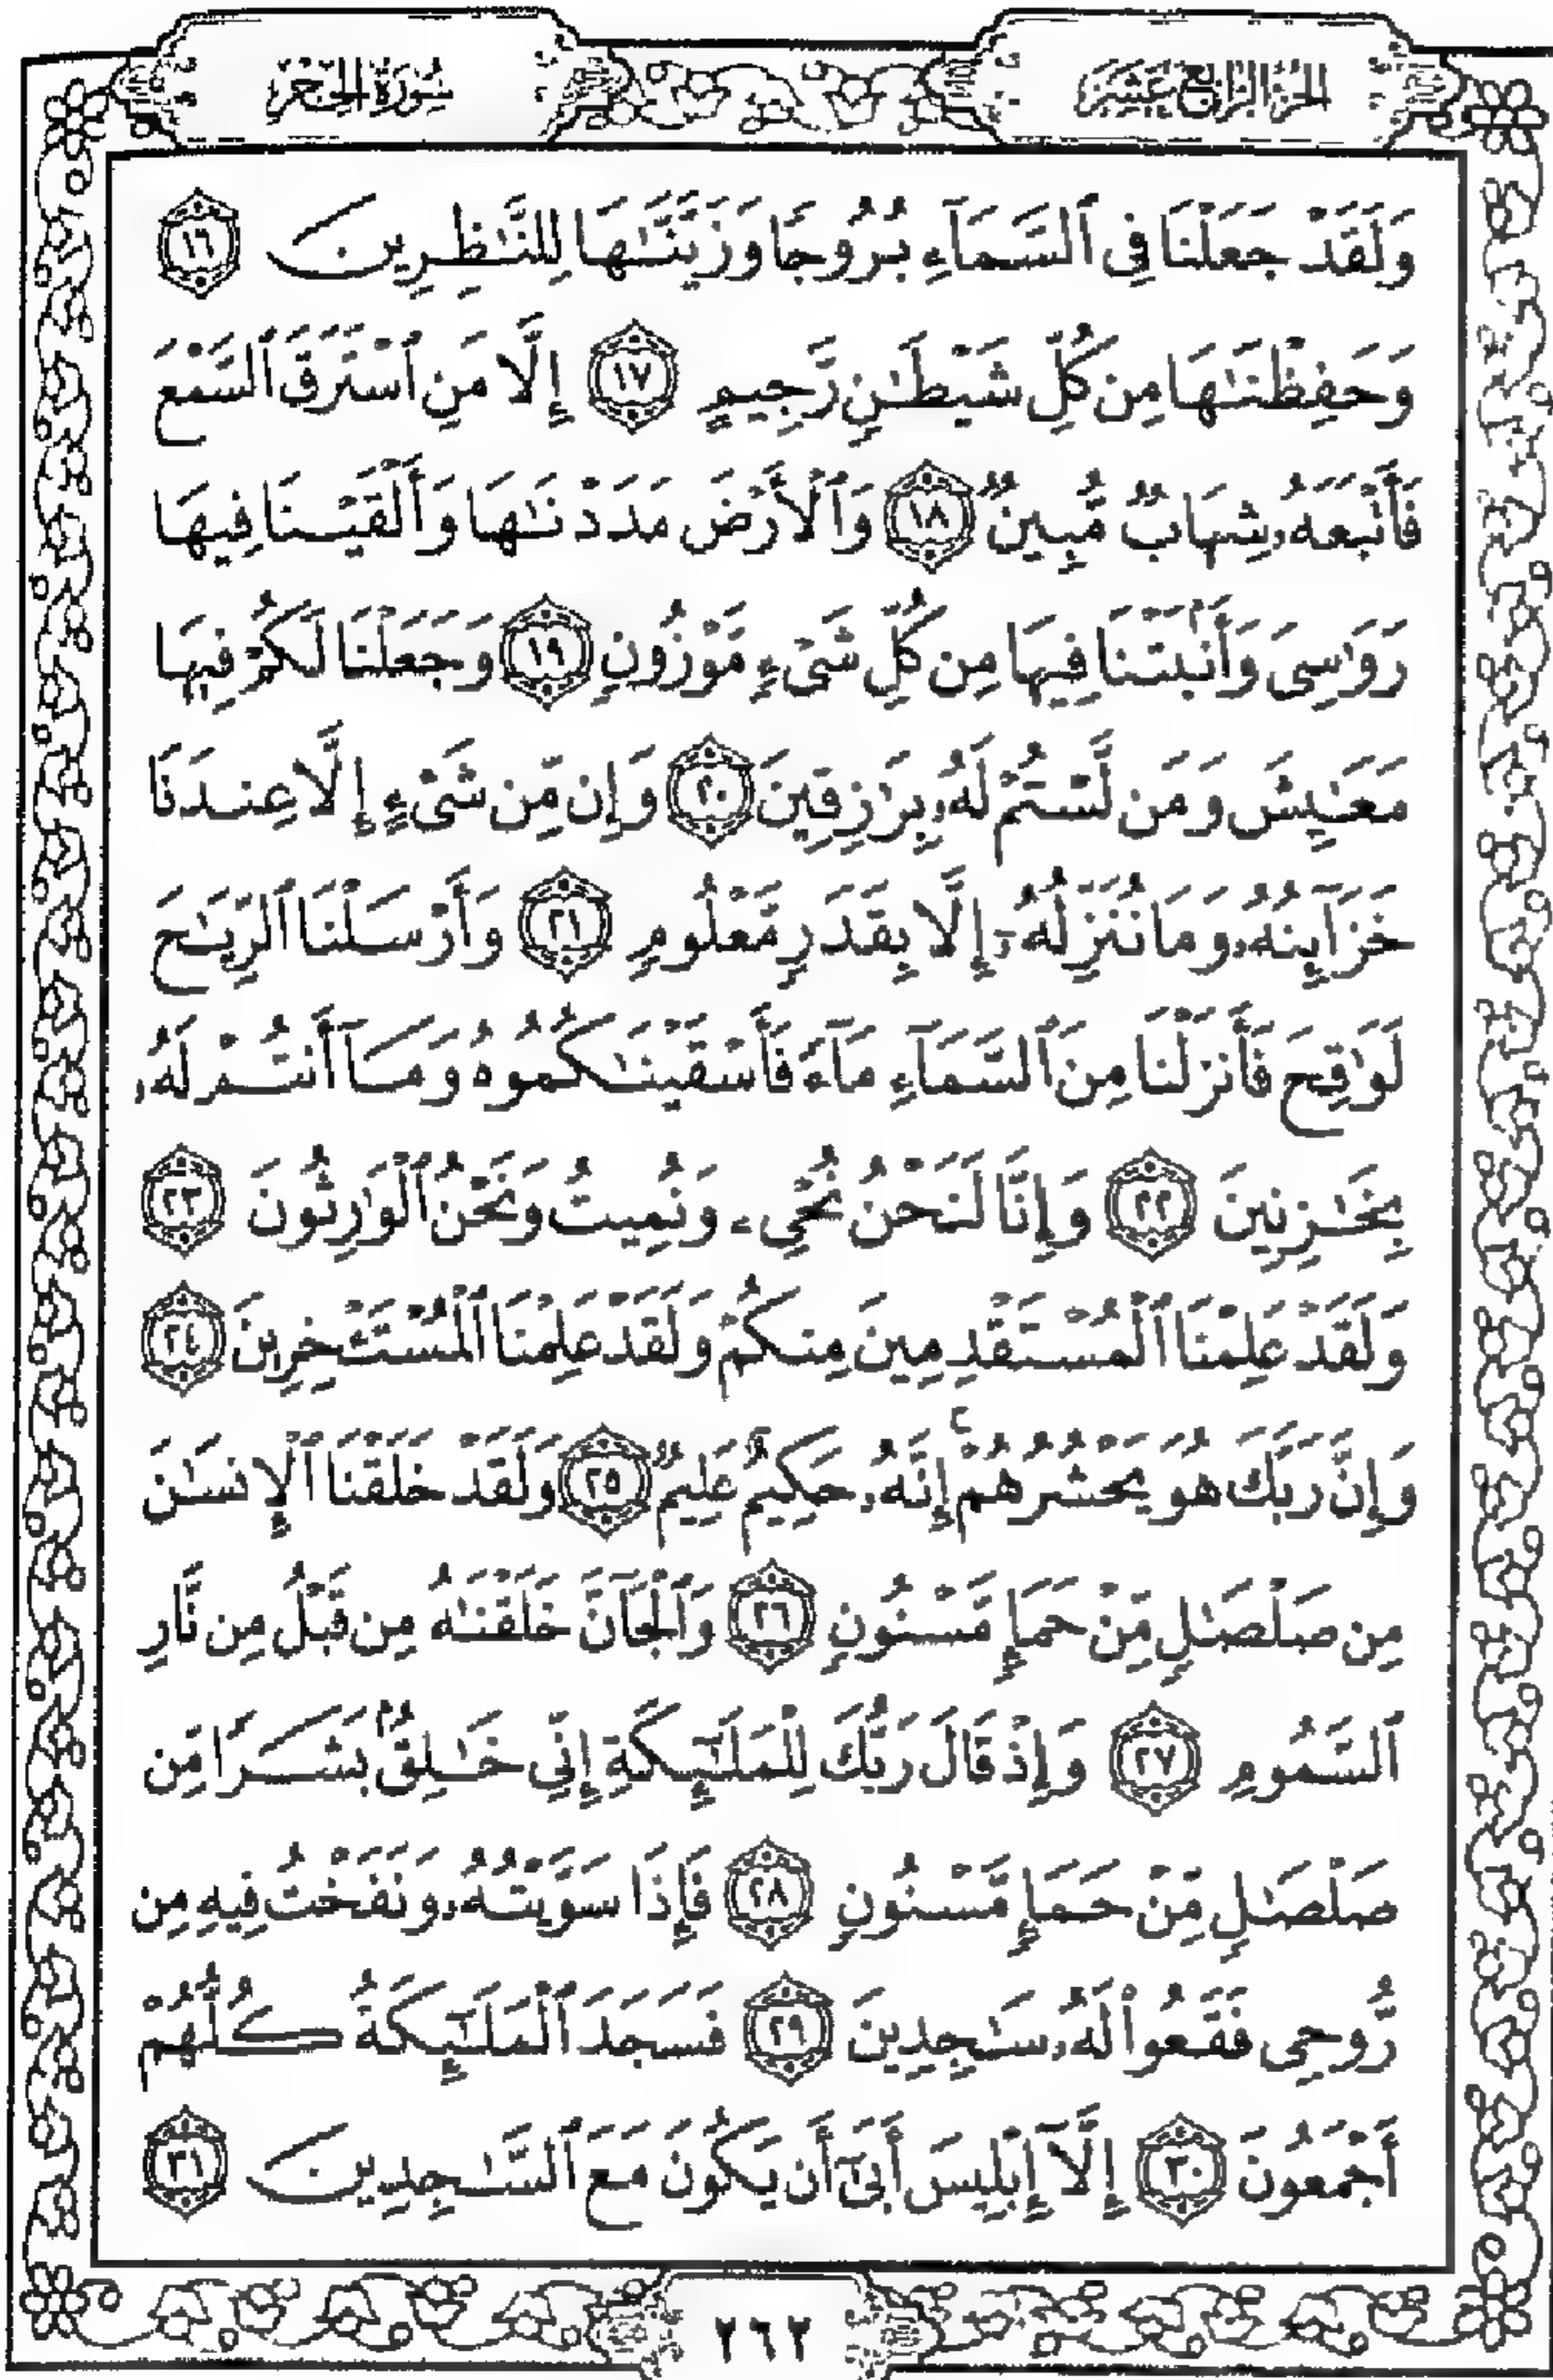 الجزء الرابع عشر
سورة الحجر
وَلَقَدْ جَعَلْنَا فِي ٱلسَّمَآءِ بُرُوجًا وَزَيَّنَّٰهَا لِلنَّٰظِرِينَ ١٦
وَحَفِظْنَٰهَا مِن كُلِّ شَيْطَٰنٍ رَّجِيمٍ ١٧ إِلَّا مَنِ ٱسْتَرَقَ ٱلسَّمْعَ
فَأَتْبَعَهُۥ شِهَابٌ مُّبِينٌ ١٨ وَٱلْأَرْضَ مَدَدْنَٰهَا وَأَلْقَيْنَا فِيهَا
رَوَٰسِىَ وَأَنۢبَتْنَا فِيهَا مِن كُلِّ شَىْءٍ مَّوْزُونٍ ١٩ وَجَعَلْنَا لَكُمْ فِيهَا
مَعَٰيِشَ وَمَن لَّسْتُمْ لَهُۥ بِرَٰزِقِينَ ٢٠ وَإِن مِّن شَىْءٍ إِلَّا عِندَنَا
خَزَآئِنُهُۥ وَمَا نُنَزِّلُهُۥٓ إِلَّا بِقَدَرٍ مَّعْلُومٍ ٢١ وَأَرْسَلْنَا ٱلرِّيَٰحَ
لَوَٰقِحَ فَأَنزَلْنَا مِنَ ٱلسَّمَآءِ مَآءً فَأَسْقَيْنَٰكُمُوهُ وَمَآ أَنتُمْ لَهُۥ
بِخَٰزِنِينَ ٢٢ وَإِنَّا لَنَحْنُ نُحْىِۦ وَنُمِيتُ وَنَحْنُ ٱلْوَٰرِثُونَ ٢٣
وَلَقَدْ عَلِمْنَا ٱلْمُسْتَقْدِمِينَ مِنكُمْ وَلَقَدْ عَلِمْنَا ٱلْمُسْتَـْٔخِرِينَ ٢٤
وَإِنَّ رَبَّكَ هُوَ يَحْشُرُهُمْ ۚ إِنَّهُۥ حَكِيمٌ عَلِيمٌ ٢٥ وَلَقَدْ خَلَقْنَا ٱلْإِنسَٰنَ
مِن صَلْصَٰلٍ مِّنْ حَمَإٍ مَّسْنُونٍ ٢٦ وَٱلْجَآنَّ خَلَقْنَٰهُ مِن قَبْلُ مِن نَّارِ
ٱلسَّمُومِ ٢٧ وَإِذْ قَالَ رَبُّكَ لِلْمَلَٰٓئِكَةِ إِنِّى خَٰلِقٌۢ بَشَرًا مِّن
صَلْصَٰلٍ مِّنْ حَمَإٍ مَّسْنُونٍ ٢٨ فَإِذَا سَوَّيْتُهُۥ وَنَفَخْتُ فِيهِ مِن
رُّوحِى فَقَعُوا۟ لَهُۥ سَٰجِدِينَ ٢٩ فَسَجَدَ ٱلْمَلَٰٓئِكَةُ كُلُّهُمْ
أَجْمَعُونَ ٣٠ إِلَّآ إِبْلِيسَ أَبَىٰٓ أَن يَكُونَ مَعَ ٱلسَّٰجِدِينَ ٣١
٢٦٣